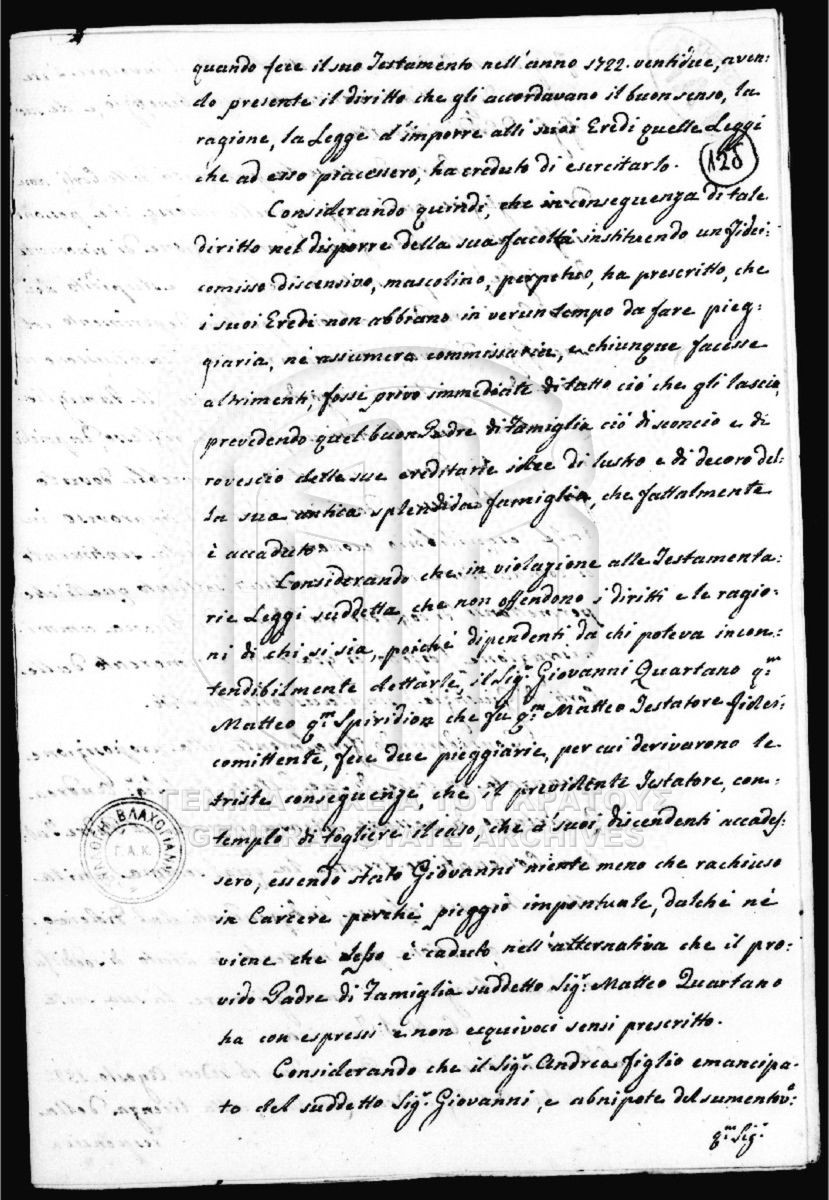 quando fece il suo Testamento nell'anno 1722. ventidue, aven-
do presente il diritto che gli accordavano il buon senso, la
ragione, la Legge d'imporre alli suoi Eredi quelle Leggi
che ad esso piacessero, ha creduto di esercitarlo.
128
Considerando quindi, che in conseguenza di tale
diritto nel disporre della sua facoltà instituendo un fidei:
comisso discensivo, mascolino, perpetuo, ha prescritto, che
i suoi Eredi non abbiano in verun tempo da fare pieg:
giaria, nè assumere commissarie, e chiunque facesse
altrimenti, fosse privo immediate di tutto ciò che gli lascia,
prevedendo quel buon Padre di Famiglia ciò di sconcio e di
rovescio delle sue ereditarie idee di lustro e di decoro del:
la sua antica splendida famiglia, che fattalmente
è accaduto.
Considerando che in violazione alle Testamenta:
rie Leggi suddette, che non offendono i diritti e le ragio:
ni di chi si sia, poichè dipendenti da chi poteva incon:
tendibilmente dettarle, il Sigr. Giovanni Quartano qm.
Matteo qm. Spiridion che fù qm. Matteo Testatore fidei:
comittente, fece due pieggiarie, per cui derivarono le
triste conseguenze, che il previdente Testatore, con:
templò di togliere il caso, che a' suoi discendenti accades:
sero, essendo stato Giovanni niente meno che rachiuso
in Carcere perchè pieggio impontuale, dalchè ne
viene che desso è caduto nell'alternativa che il pro:
vido Padre di Famiglia suddetto Sigr. Matteo Quartano
ha con espressi e non equivoci sensi prescritto.
Considerando che il Sigr. Andrea figlio emancipa-
to del suddetto Sigr. Giovanni, e abnipote del sumentovo:
qm. Sigr.
ΓΕΝΙΚΑ ΑΡΧΕΙΑ ΤΟΥ ΚΡΑΤΟΥΣ
GENERAL STATE ARCHIVES
ΒΛΑΧΟΓΙΑΝΝΗ
Γ.Α.Κ.